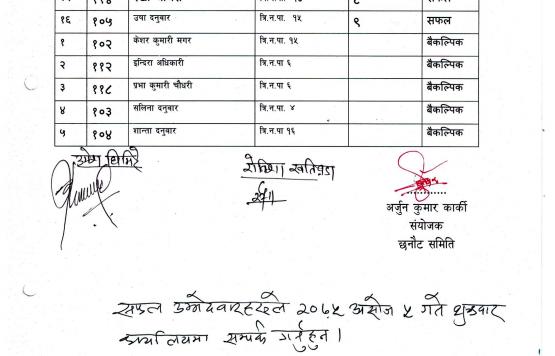 १६ १०५ उषा दनुवार त्रि.न.पा. १५ ९ सफल
१ १०२ केशर कुमारी मगर त्रि.न.पा. १५ बैकल्पिक
२ ११२ इन्दिरा अधिकारी त्रि.न.पा ६ बैकल्पिक
३ ११८ प्रभा कुमारी चौधरी त्रि.न.पा ६ बैकल्पिक
४ १०३ सलिना दनुवार त्रि.न.पा. ४ बैकल्पिक
५ १०४ शान्ता दनुवार त्रि.न.पा १६ बैकल्पिक
उमेश घिमिरे रोशिमा खतिवडा
अर्जुन कुमार कार्की
संयोजक
छनौट समिति
सफल उम्मेदवारहरुले २०७५ असोज ५ गते शुक्रवार
कार्यालयमा सम्पर्क गर्नुहुन ।